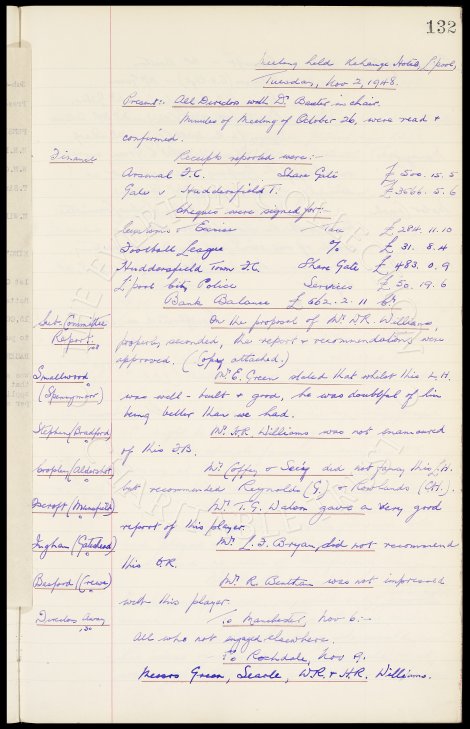 132
Meeting held Exchange Hotel, L'pool,
Tuesday, Nov 2, 1948.
Present:- All Directors with Dr. Baxter in chair.
Minutes of Meeting of October 26, were read &
confirmed.
Finance Receipts reported were:-
Arsenal F.C. Share Gate £ 500. 15. 5
Gate v Huddersfield T. £ 3566. 5. 6
Cheques were signed for:-
Customs & Excise Tax £ 284. 11. 10
Football League % £ 31. 8. 4
Huddersfield Town F.C. Share Gate £ 483. 0. 9
L'pool City Police Services £ 50. 19. 6
Bank Balance £ 662. 2. 11 Cr.
Sub-Committee On the proposal of Mr. W.R. Williams,
Report. properly seconded, the report & recommendations were
approved. (Copy attached.)
Smallwood Mr. E. Green stated that whilst this L.H.
(Spennymoor) was well-built & good, he was doubtful of him
being better than we had.
Stephen (Bradford) Mr. H.R. Williams was not enamoured
of this F.B.
Cropley (Aldershot) Mr. Coffey & Seig did not fancy this I.H.
but recommended Reynolds (G.) & Rowlands (CH.).
Oscroft (Mansfield) Mr. T.G. Watson gave a very good
report of this player.
Ingham (Gateshead) Mr. L.F. Bryan, did not recommend
this O.R.
Basford (Crewe) Mr. R. Bentham was not impressed
with this player.
Directors Away To Manchester, Nov 6:-
All who not engaged elsewhere.
To Rochdale, Nov 9.
Messrs Green, Searle, W.R. & H.R. Williams.